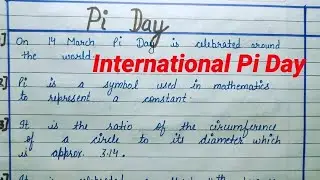 Pi Day
1] On 14 March Pi Day is celebrated around
the world.
International Pi Day
2] Pi is a symbol used in mathematics
to represent a constant.
3] It is the ratio of the circumference
of a circle to its diameter which
is approx. 3.14.
It is celebrated